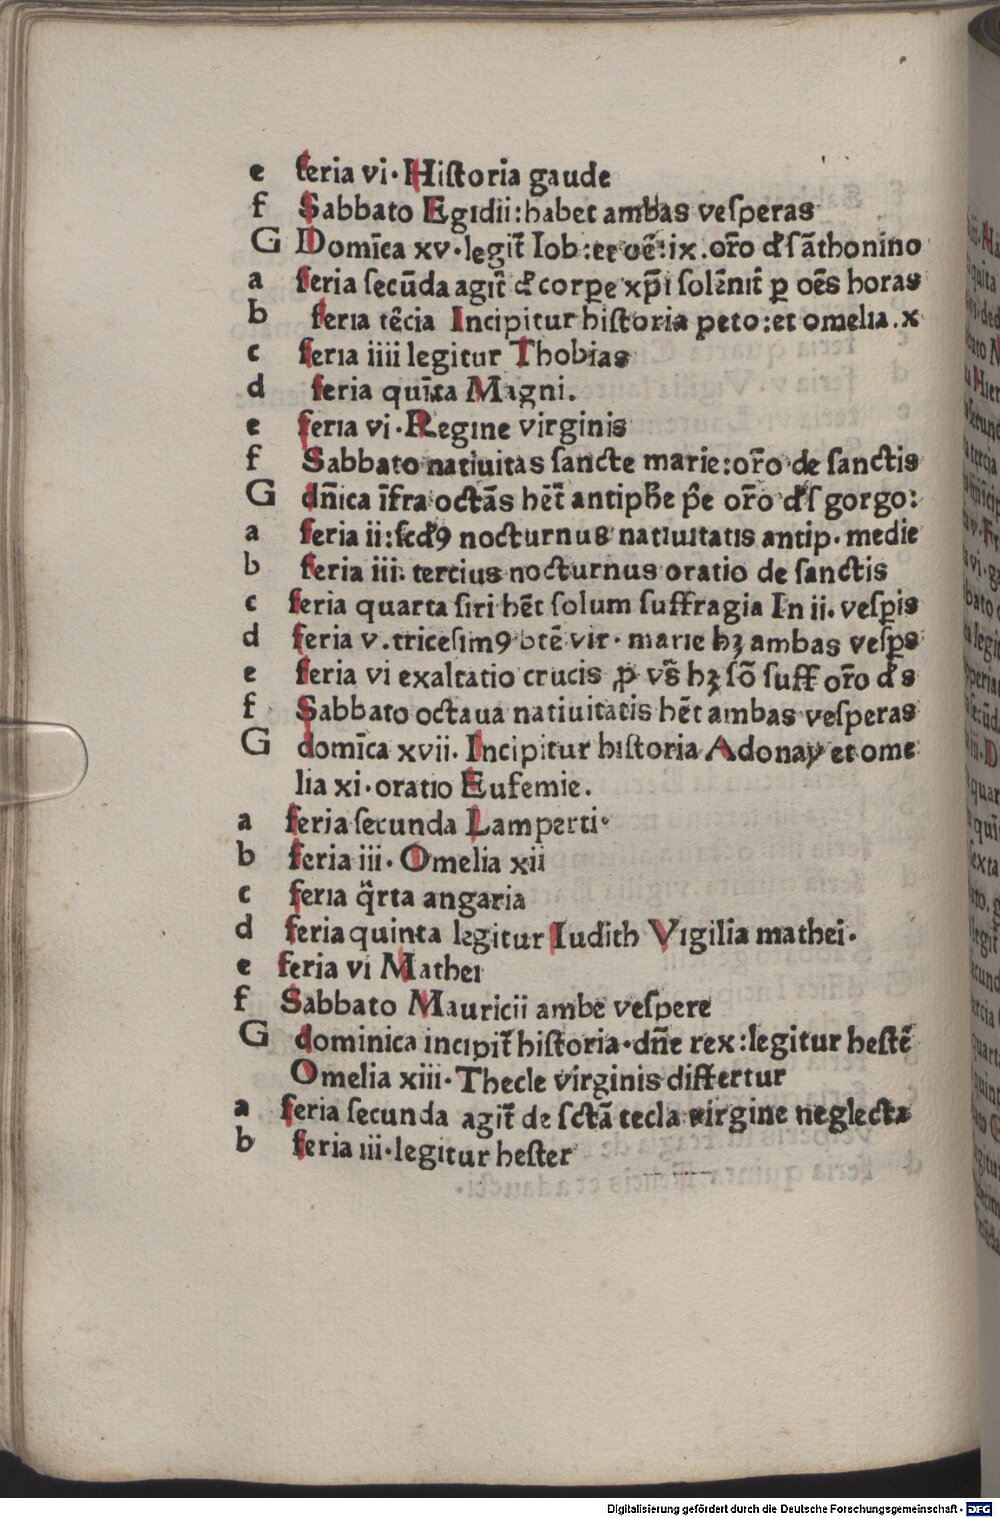 e feria vi· Hiſtoria gaude
f Sabbato Egidii: habet ambas veſperas
G Domīca xv· legit᷑ Iob: et oē: ix. or̄o d̓ ſāthonino
a feria ſecūda agit᷑ d̓ corpe xp̄i ſolēnit᷑ ꝑ oēs horas
b feria tēcia Incipitur hiſtoria peto: et omelia. x
c feria iiii legitur Thobias
d feria quīta Magni.
e feria vi· Regine virginis
f Sabbato natiuitas ſancte marie: or̄o de ſanctis
G dn̄ica īfra octās hēt᷑ antiph̄e p̄e or̄o d̓ ſ gorgo:
a feria ii: ſcd̓ꝯ nocturnus natiuitatis antip· medie
b feria iii: tercius nocturnus oratio de ſanctis
c feria quarta ſiri hēt ſolum ſuffragia In ii. veſꝑis
d feria v. triceſimꝯ btē vir· marie hꝫ ambas veſꝑs
e feria vi exaltatio crucis ꝓ vs̄ hꝫ ſō ſuff or̄o d̓ s
f Sabbato octaua natiuitatis hēt ambas veſperas
G domīca xvii. Incipitur hiſtoria Adonay et ome
lia xi· oratio Eufemie.
a feria ſecunda Lamperti·
b feria iii· Omelia xii
c feria q̄rta angaria
d feria quinta legitur Iudith Vigilia mathei·
e feria vi Mathei
f Sabbato Mauricii ambe veſpere
G dominica incipit᷑ hiſtoria· dn̄e rex: legitur heſtē
Omelia xiii· Thecle virginis differtur
a feria ſecunda agit᷑ de ſctā tecla virgine neglecta
b feria iii· legitur heſter
Digitalisierung gefördert durch die Deutsche Forschungsgemeinschaft - DFG